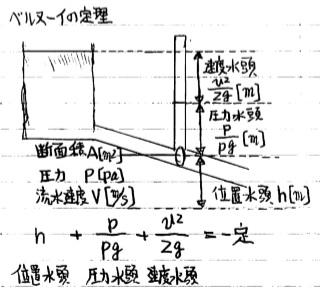 ベルヌーイの定理
速度水頭
v²/2g [m]
圧力水頭
P/ρg [m]
断面積A[m²]
圧力 P[Pa]
流水速度V[m/s]
位置水頭h[m]
h + P/ρg + v²/2g = 一定
位置水頭 圧力水頭 速度水頭